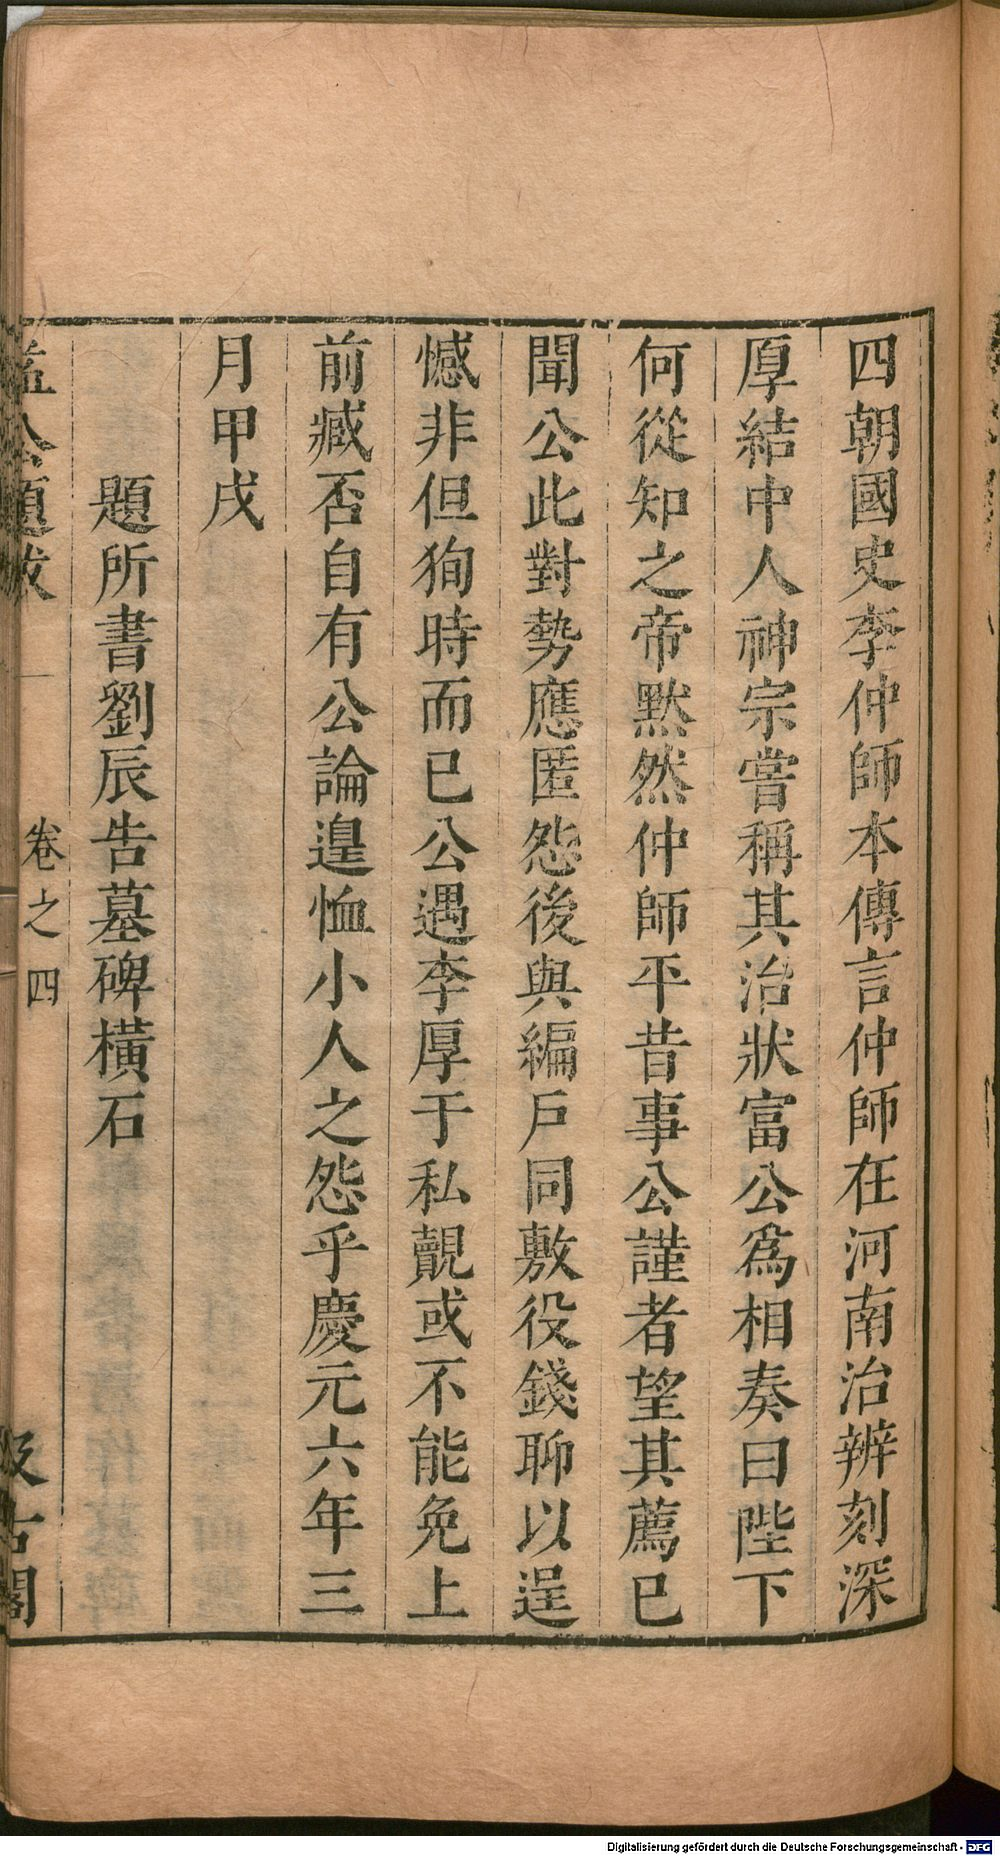 四朝國史李仲師本傳言仲師在河南治辨刻深
厚結中人神宗嘗稱其治狀富公爲相奏曰陛下
何從知之帝默然仲師平昔事公謹者望其薦已
聞公此對勢應匿怨後與編戶同敷役錢聊以逞
憾非但狥時而已公遇李厚于私覿或不能免上
前臧否自有公論遑恤小人之怨乎慶元六年三
月甲戌
題所書劉辰告墓碑橫石
益公題跋
卷之四
汲古閣
Digitalisierung gefördert durch die Deutsche Forschungsgemeinschaft - DFG